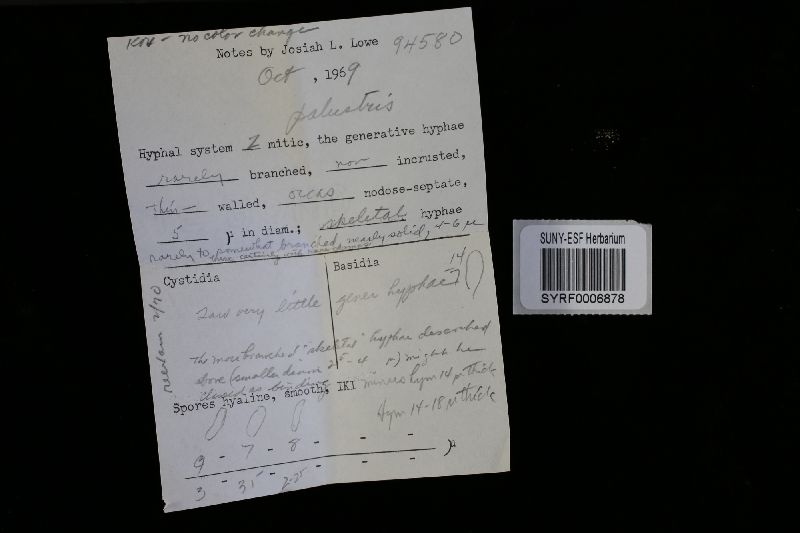 KOH - no color change
Notes by Josiah L. Lowe 94580
Oct , 1969
palustris
Hyphal system 2 mitic, the generative hyphae
rarely branched, non incrusted,
thin- walled, occas nodose-septate,
5 µ in diam.; skeletal hyphae
rarely to somewhat branched, nearly solid, 4-6 µ
Cystidia
Basidia
14
7
Saw very little gener hyphae
The more branched "skeletal" hyphae described
above (smaller diam 2.5-4 µ) might be
classed as binding
Spores hyaline, smooth, IKI minus hym 14 µ thick
Hym 14-18 µ thick
9 - 7 - 8 - - -
3 - 3.5 - 2-2.5 - - - )µ
reexam 2/70
SUNY-ESF Herbarium
SYRF0006878